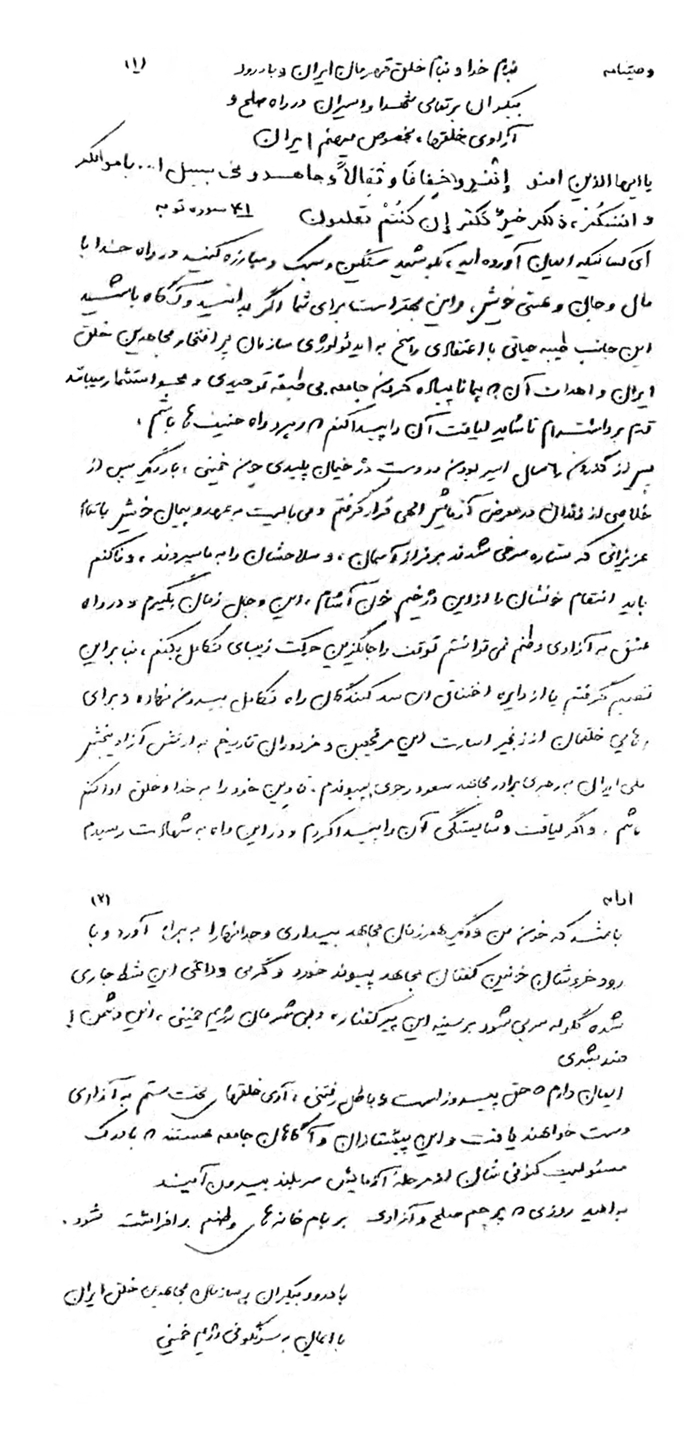 وصیتنامه بنام خدا و بنام خلق قهرمان ایران و با درود (۱)
بیکران بر تمامی شهدا و اسیران در راه صلح و
آزادی خلقها، بخصوص میهنم ایران
یا ایها الذین امنو إنْفِرِوا خِفافاً وَ ثِقالاً وجاهدو فی سبیل ا... باموالکم
و انفسکُمْ، ذلکم خیرٌ لَکُمْ إن کُنتُمْ تَعلَمون ۴۱ سوره توبه
ای کسانیکه ایمان آورده اید، بکوشید سنگین و سبک و مبارزه کنید در راه خدا با
مال و جان و هستی خویش، و این بهتر است برای شما اگر بدانسید و آگاه باشید
این جانب طیبه حیاتی با اعتقادی راسخ به ایدئولوژی سازمان پر افتخار مجاهدین خلق
ایران و اهداف آن که همانا پیاده کردن جامعه بی طبقه توحیدی و محو استثمار میباشد
قدم برداشته‌ام تا شاید لیاقت آن را پیدا کنم که رهرو راه حنیف ها باشم.
پس از گذراندن سال اسیر بودن در دست دژخیمان پلیدی چون خمینی، بار دیگر پس از
خلاصی از زندان در معرض آزمایش الهی قرار گرفتم و می بایست به عهد و پیمان خویش با تمام
عزیزانی که ستاره سرخی شدند بر فراز آسمان، و سلاحشان را به ما سپردند، وفا کنم
باید انتقام خونشان را از این دژخیم خون آشام، این دجال زمان بگیرم و در راه
عشق به آزادی وطنم نمی توانستم توقف را جایگزین حرکت زیبای تکامل بکنم، بنابراین
تصمیم گرفتم پا از دایره اختناق این سد کنندگان راه تکامل بیرون نهاده و برای
رهایی خلقمان از زنجیر اسارت این مرتجعین و مزدوران تاریخ به ارتش آزادیبخش
ملی ایران به رهبری برادر مجاهد مسعود رجوی بپیوندم. تا دین خود را به خدا و خلق ادا کنم
باشم. و اگر لیاقت و شایستگی آن را پیدا کردم و در این راه به شهادت رسیدم
ادامه (۲)
باشد که خون من و دیگر همرزمان مجاهد بیداری وجدانها را به همراه آورد و با
رود خروشان خونین کفنان مجاهد پیوند خورد و گرمی و داغی این شط جاری
شده گلوله سربی شود بر سینه این پیر کفتار، و بی شرمان رژیم خمینی، این دشمن
ضد بشری
ایمان دارم که حق پیروز است و باطل رفتنی، آری خلقهای تحت ستم به آزادی
دست خواهند یافت و این پیشتازان و آگاهان جامعه هستند که با درک
مسئولیت کنونی شان از مرحله آزمایش سربلند بیرون آمیند
به امید روزی که پرچم صلح و آزادی بر بام خانه های وطنم برافراشته شود.
با درود بیکران بر سازمان مجاهدین خلق ایران
با ایمان به سرنگونی رژیم خمینی